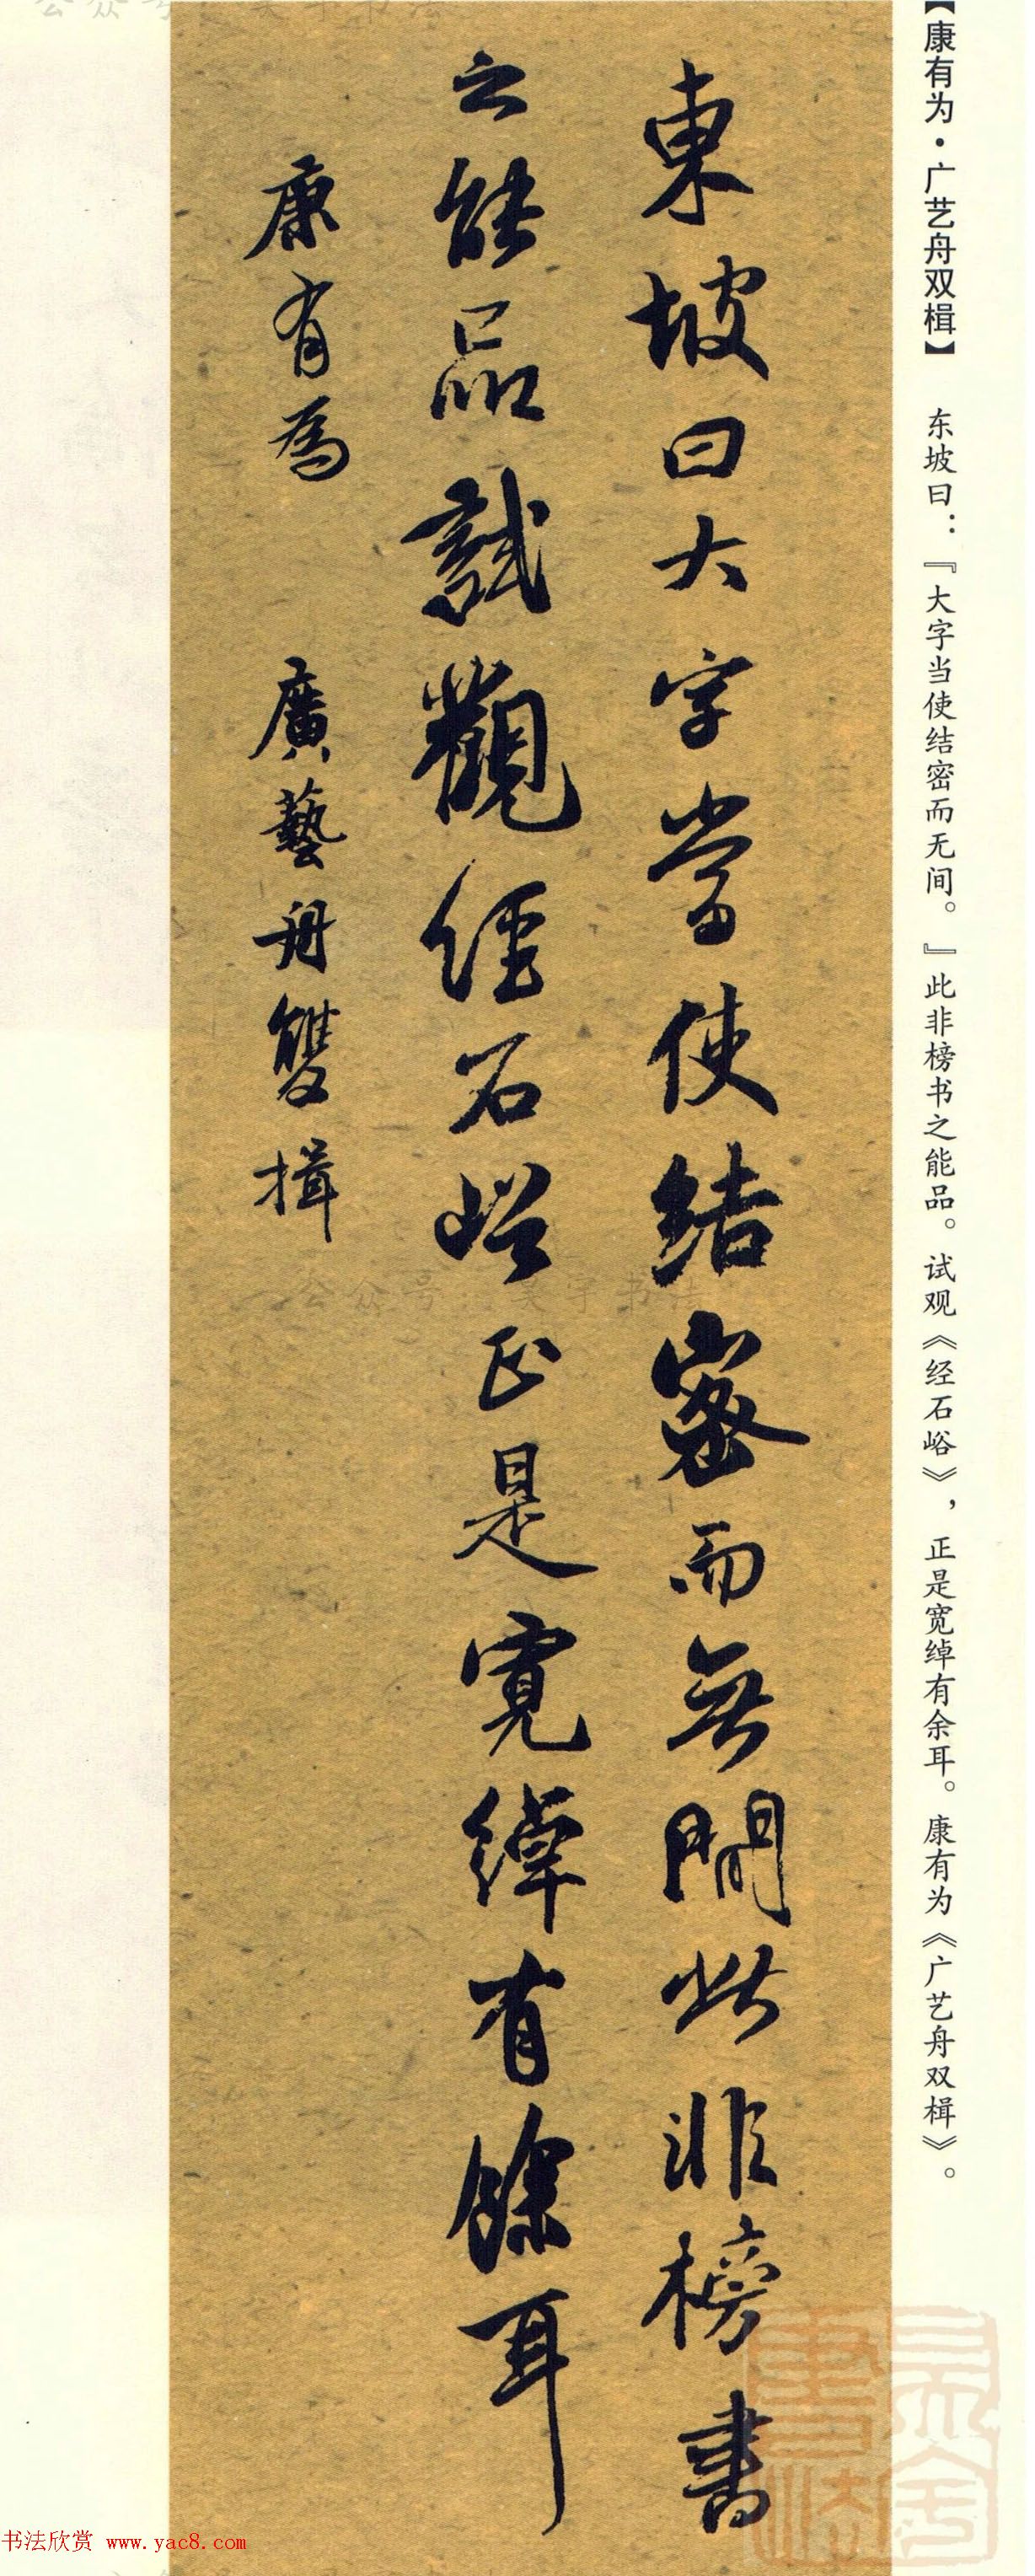 【康有为·广艺舟双楫】 东坡曰：『大字当使结密而无间。』此非榜书之能品。试观《经石峪》，正是宽绰有余耳。康有为《广艺舟双楫》。
東坡曰大字當使結密而無間此非榜書
之能品試觀經石峪正是寬綽有餘耳
康有為 廣藝舟雙楫
书法欣赏 www.yac8.com